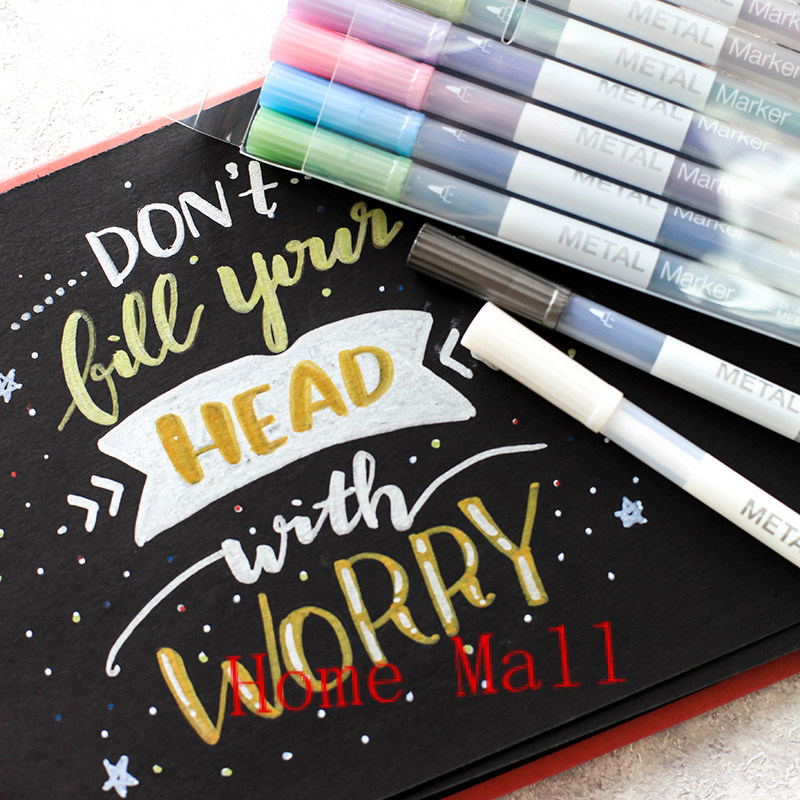 Marker
METAL Marker
METAL Marker
METAL Marker
METAL Marker
METAL Marker
METAL Marker
METAL
METAL
DON't
fill your
HEAD
with
WORRY
Home Mall